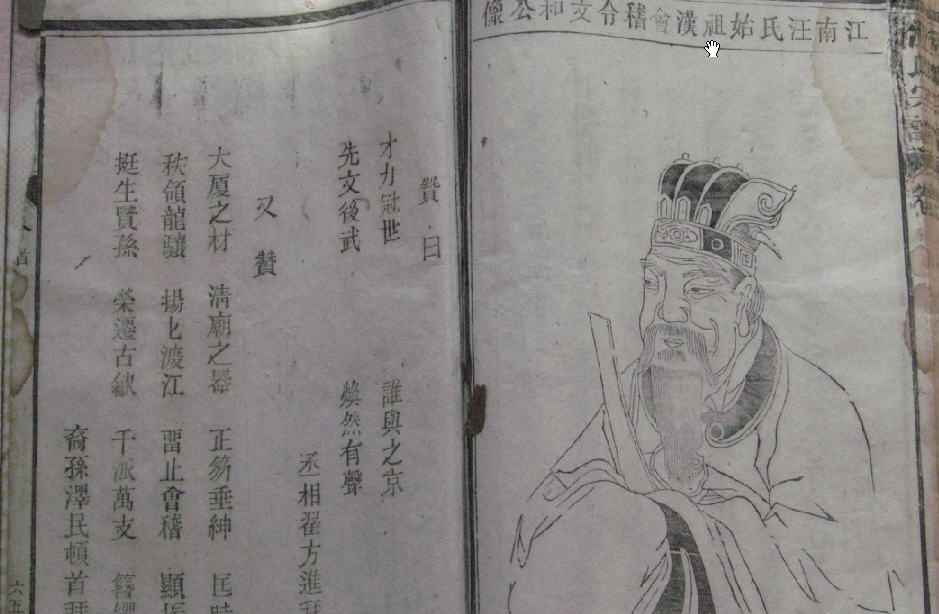 江南汪氏始祖漢會稽令文和公像
贊曰
才力冠世 誰與之京
先文後武 煥然有聲
丞相翟方進拜
又贊
大厦之材 清廟之器 正笏垂紳 匡時
秩領龍驤 揚七渡江 畱止會稽 顯振
挺生賢孫 榮遷古歙 千派萬支 簪纓
裔孫澤民頓首拜
六五